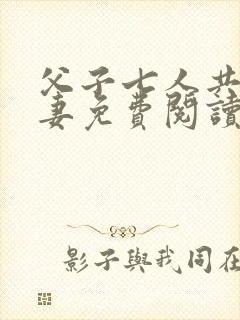 父子七人共
妻免費閱讀
影子與我同在